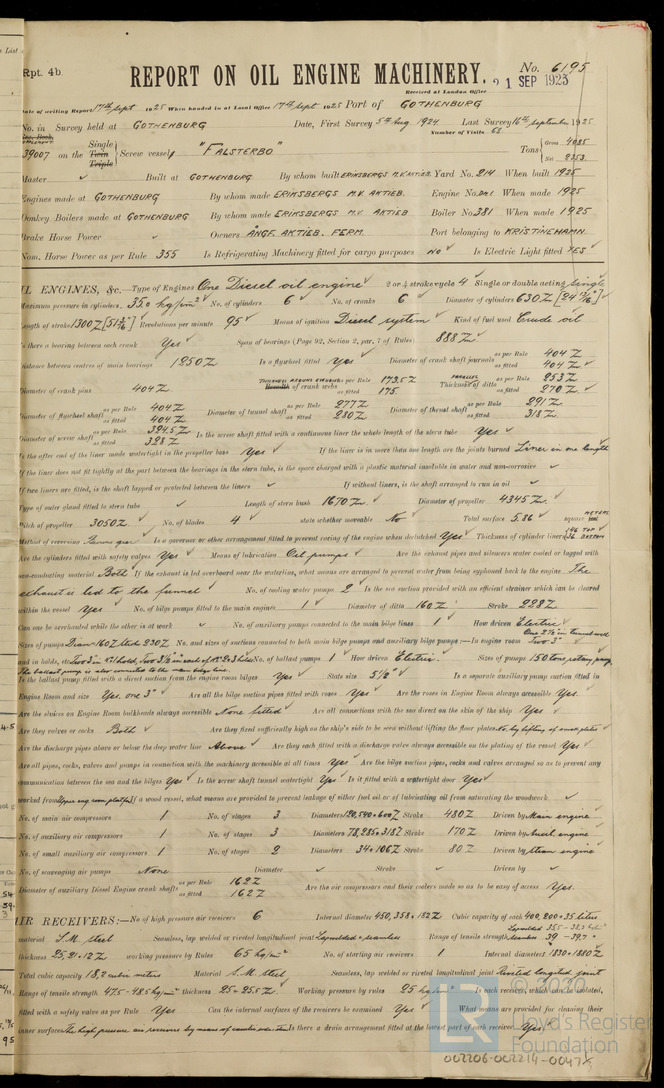 Rpt. 4b.
REPORT ON OIL ENGINE MACHINERY.
No. 6195
Received at London Office
21 SEP 1925
Date of writing Report 17th Sept 1925 When handed in at Local Office 17th Sept 1925 Port of GOTHENBURG
No. in Survey held at GOTHENBURG Date, First Survey 5th Aug 1924 Last Survey 16th September 1925
Number of Visits 68
39007 on the Single Twin Triple Screw vessel "FALSTERBO" Tons Gross 4085 Net 2353
Master ✓ Built at GOTHENBURG By whom built ERIKSBERGS M.V. AKTIEB. Yard No. 214 When built 1925
Engines made at GOTHENBURG By whom made ERIKSBERGS M.V. AKTIEB. Engine No. When made 1925
Donkey Boilers made at GOTHENBURG By whom made ERIKSBERGS M.V. AKTIEB Boiler No. 381 When made 1925
Brake Horse Power ✓ Owners ÅNGF. AKTIEB. FERM. Port belonging to KRISTINEHAMN
Nom. Horse Power as per Rule 355 Is Refrigerating Machinery fitted for cargo purposes NO Is Electric Light fitted YES
OIL ENGINES, &c.—Type of Engines One Diesel oil engine 2 or 4 stroke cycle 4 Single or double acting Single
Maximum pressure in cylinders 35.0 kg/cm² No. of cylinders 6 No. of cranks 6 Diameter of cylinders 630 Z
Length of stroke 1300 Z Revolutions per minute 95 Means of ignition Diesel system Kind of fuel used Crude oil
Is there a bearing between each crank Yes Span of bearings (Page 92, Section 2, par. 7 of Rules) 888 Z
Distance between centres of main bearings 1250 Z Is a flywheel fitted Yes Diameter of crank shaft journals as per Rule 404 Z as fitted 404 Z
Diameter of crank pins 404 Z of crank webs as per Rule 173.5 Z as fitted 175 Thickness of ditto as per Rule 253 Z as fitted 270 Z
Diameter of flywheel shaft as per Rule 404 Z as fitted 404 Z Diameter of tunnel shaft as per Rule 277 Z as fitted 280 Z Diameter of thrust shaft as per Rule 291 Z as fitted 318 Z
Diameter of screw shaft as per Rule 324.5 Z as fitted 328 Z Is the screw shaft fitted with a continuous liner the whole length of the stern tube Yes
Is the after end of the liner made watertight in the propeller boss Yes If the liner is in more than one length are the joints burned Liner in one length
If the liner does not fit tightly at the part between the bearings in the stern tube, is the space charged with a plastic material insoluble in water and non-corrosive ✓
If two liners are fitted, is the shaft lapped or protected between the liners ✓ If without liners, is the shaft arranged to run in oil ✓
Type of outer gland fitted to stern tube ✓ Length of stern bush 1670 Z Diameter of propeller 4345 Z
Pitch of propeller 3050 Z No. of blades 4 state whether moveable No Total surface 5.86 square METERS
Method of reversing Is a governor or other arrangement fitted to prevent racing of the engine when declutched Yes Thickness of cylinder liners
Are the cylinders fitted with safety valves Yes Means of lubrication Oil pumps Are the exhaust pipes and silencers water cooled or lagged with
non-conducting material Both If the exhaust is led overboard near the waterline, what means are arranged to prevent water from being syphoned back to the engine The
exhaust is led to the funnel No. of cooling water pumps 2 Is the sea suction provided with an efficient strainer which can be cleared
within the vessel Yes No. of bilge pumps fitted to the main engines 1 Diameter of ditto 160 Z Stroke 228 Z
Can one be overhauled while the other is at work ✓ No. of auxiliary pumps connected to the main bilge lines 1 How driven Electric
Sizes of pumps Diam=160 Z Stroke 230 Z No. and sizes of suctions connected to both main bilge pumps and auxiliary bilge pumps:—In engine room Two 3" One 2½ in tunnel well
and in holds, etc. No. of ballast pumps 1 How driven Electric. Sizes of pumps 150 tons rotary pump
The ballast pump is also connected to the main bilge line.
Is the ballast pump fitted with a direct suction from the engine room bilges Yes State size 5½" Is a separate auxiliary pump suction fitted in
Engine Room and size Yes, one 3" Are all the bilge suction pipes fitted with roses Yes Are the roses in Engine Room always accessible Yes.
Are the sluices on Engine Room bulkheads always accessible None fitted Are all connections with the sea direct on the skin of the ship Yes
Are they valves or cocks Both Are they fixed sufficiently high on the ship's side to be seen without lifting the floor plates
Are the discharge pipes above or below the deep water line Above Are they each fitted with a discharge valve always accessible on the plating of the vessel Yes
Are all pipes, cocks, valves and pumps in connection with the machinery accessible at all times Yes Are the bilge suction pipes, cocks and valves arranged so as to prevent any
communication between the sea and the bilges Yes Is the screw shaft tunnel watertight Yes Is it fitted with a watertight door Yes
worked from Upper eng. room platf. If a wood vessel, what means are provided to prevent leakage of either fuel oil or of lubricating oil from saturating the woodwork ✓
No. of main air compressors 1 No. of stages 3 Diameters 120, 540 & 600 Z Stroke 480 Z Driven by Main engine
No. of auxiliary air compressors 1 No. of stages 3 Diameters 78, 285 & 318 Z Stroke 170 Z Driven by Auxil engine
No. of small auxiliary air compressors 1 No. of stages 2 Diameters 34 & 106 Z Stroke 80 Z Driven by Steam engine
No. of scavenging air pumps None Diameter ✓ Stroke ✓ Driven by ✓
Diameter of auxiliary Diesel Engine crank shafts as per Rule 162 Z as fitted 162 Z Are the air compressors and their coolers made so as to be easy of access Yes.
AIR RECEIVERS:—No. of high pressure air receivers 6 Internal diameter 450, 358 & 182 Z Cubic capacity of each 400, 200 & 35 liters
material S.M. steel Seamless, lap welded or riveted longitudinal joint Lapwelded & seamless Range of tensile strength
thickness 25, 21 & 12 Z working pressure by Rules 65 kg/cm² No. of starting air receivers 1 Internal diameter 1830 & 1880 Z
Total cubic capacity 18,2 cubic meters Material S.M. steel Seamless, lap welded or riveted longitudinal joint Riveted longitud. joint
Range of tensile strength 47.5 - 48.5 kg/mm² thickness 25 & 25.5 Z Working pressure by rules 25 kg/cm² Is each receiver, which can be isolated,
fitted with a safety valve as per Rule Yes Can the internal surfaces of the receivers be examined Yes What means are provided for cleaning their
inner surfaces Is there a drain arrangement fitted at the lowest part of each receiver Yes.
© 2020
LR
Lloyd's Register
Foundation
002206-002214-0047